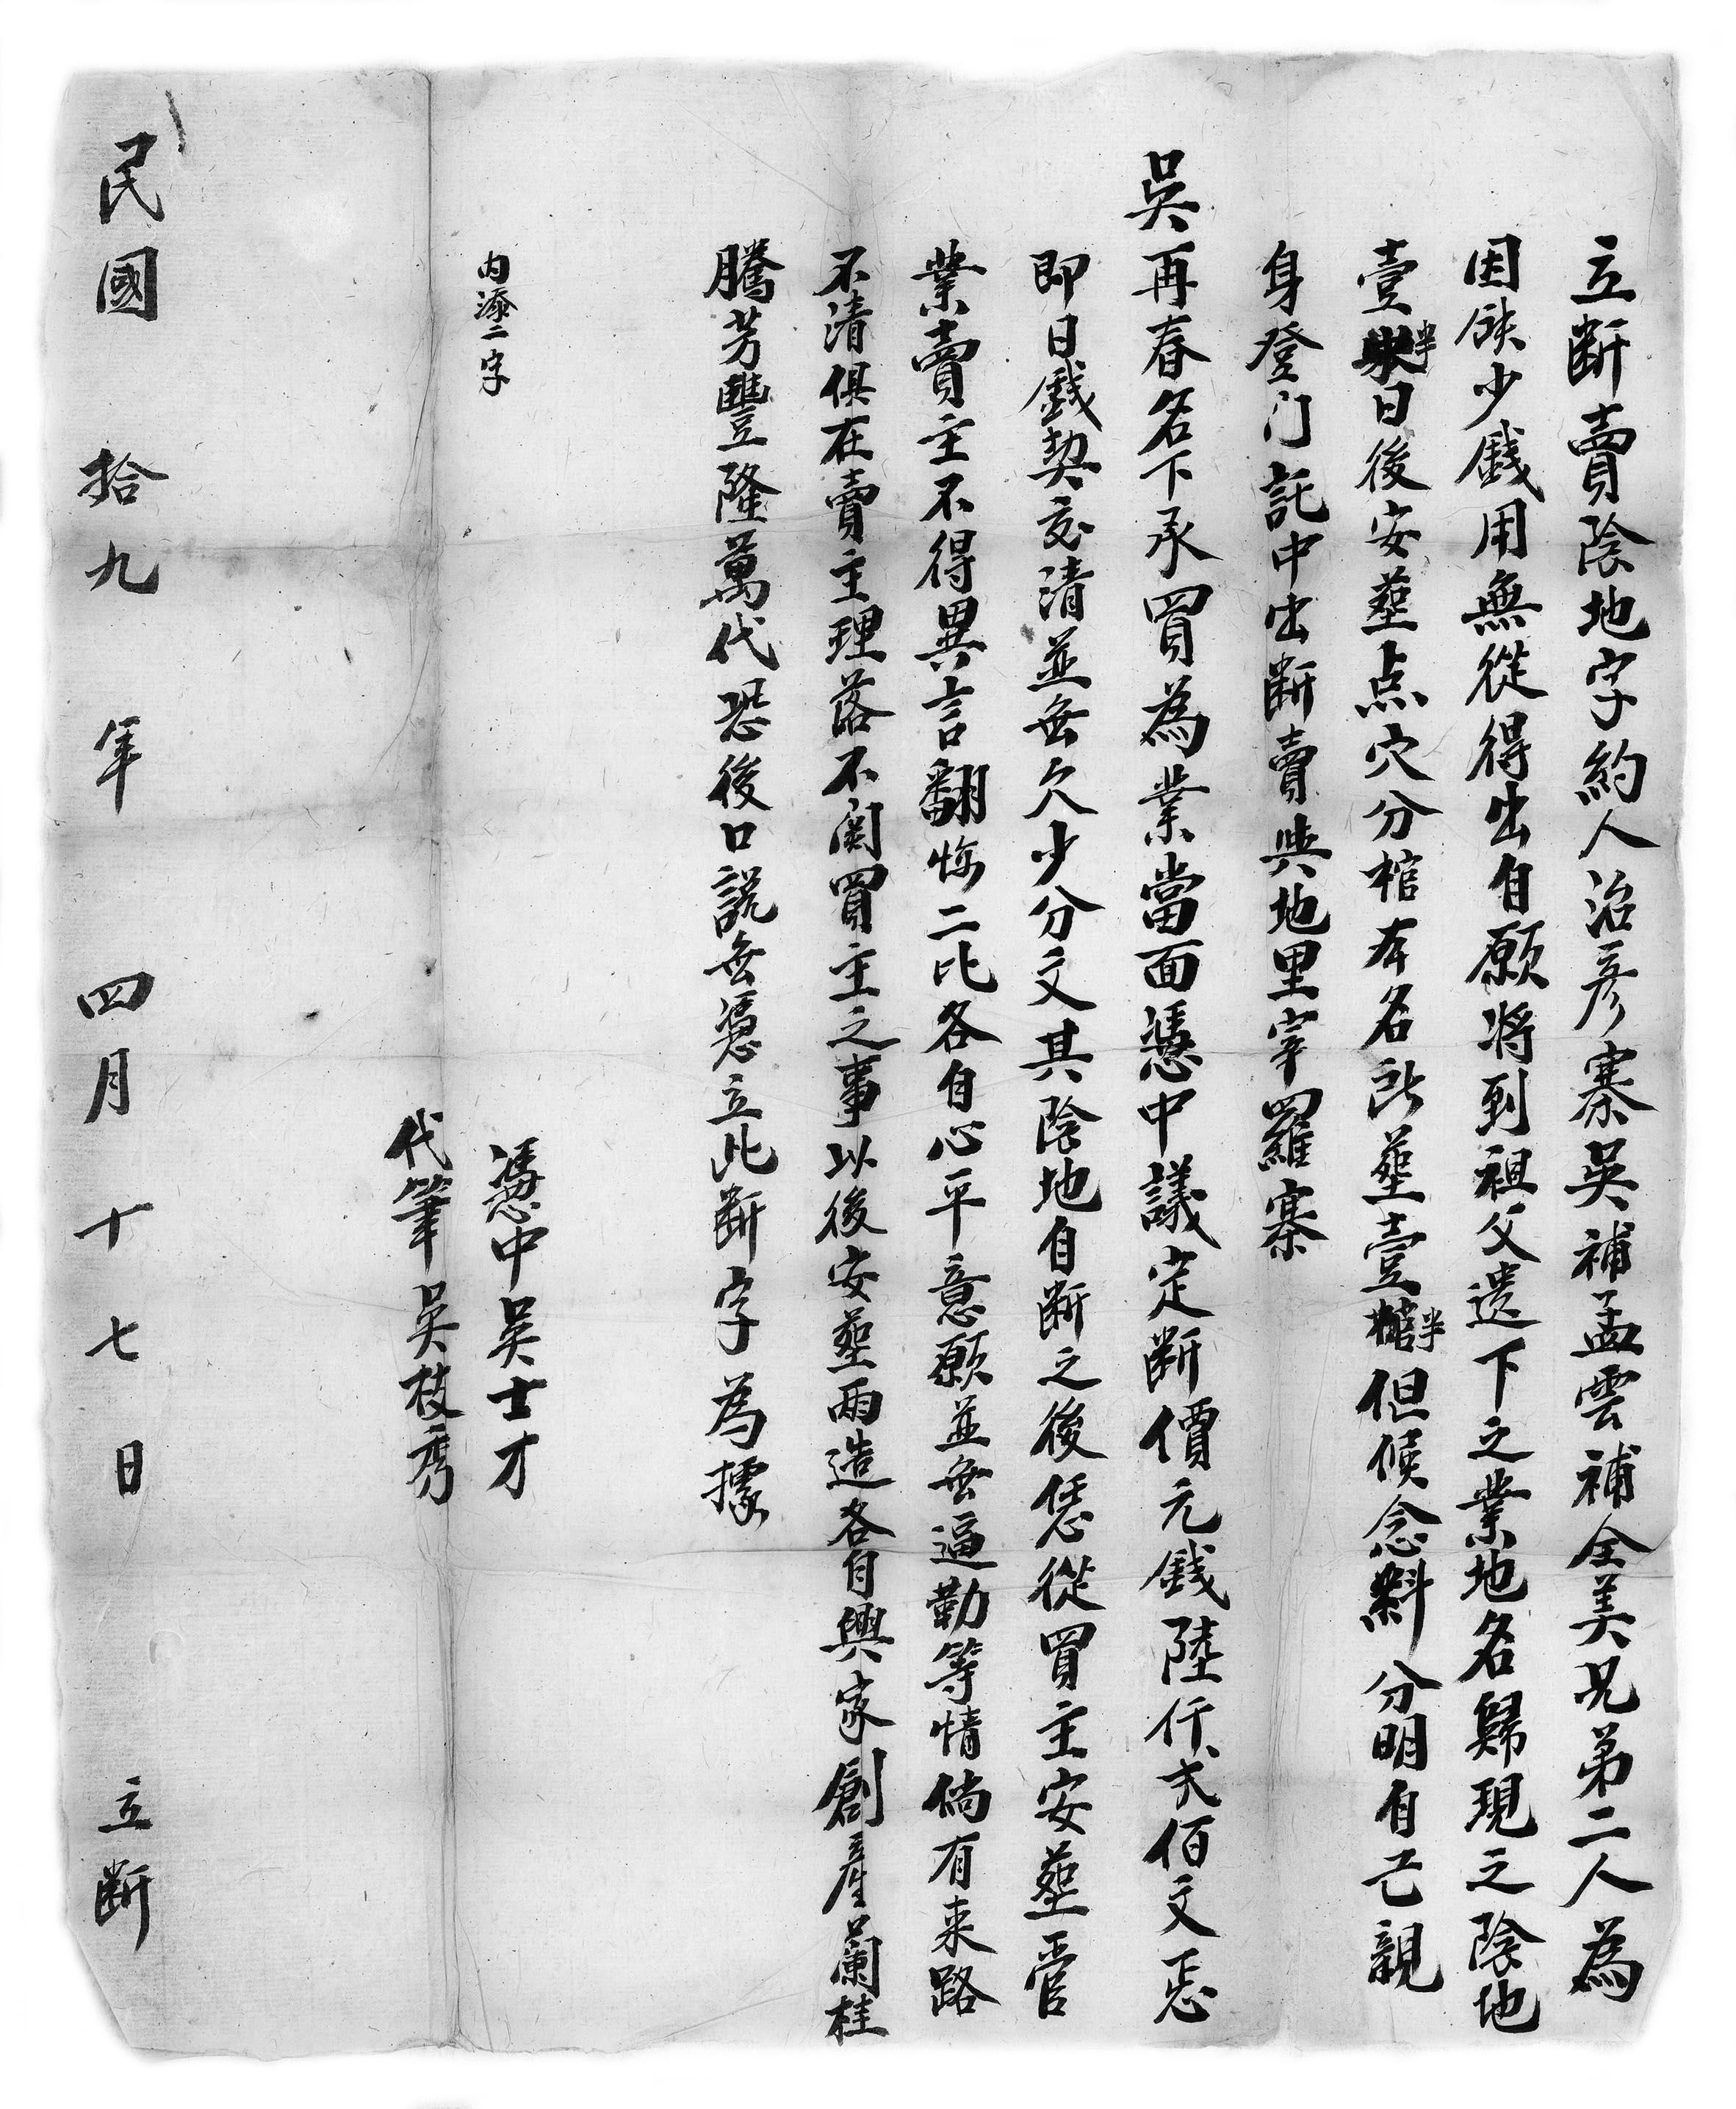 立断賣陰地字約人治彦寨吳補孟雲補全美兄弟二人為
因缺少錢用無從得出自願将到祖父遗下之業地名歸現之陰地
壹半日後安塟点穴分棺本名所塟壹半但候念料分明自己親
身登门託中出断賣與地里宰羅寨
吳再春名下承買為業當面憑中議定断價元錢陸仟弍佰文正
即日錢契交清並無欠少分文其陰地自断之後恁從買主安塟管
業賣主不得異言翻悔二比各自心平意愿並無逼勒等情倘有来路
不清俱在賣主理落不関買主之事以後安塟两造各自興家創產蘭桂
騰芳豐隆萬代恐後口説無憑立此断字為據
内添二字
憑中吳士才
代筆吳枝秀
民國拾九年四月十七日立断